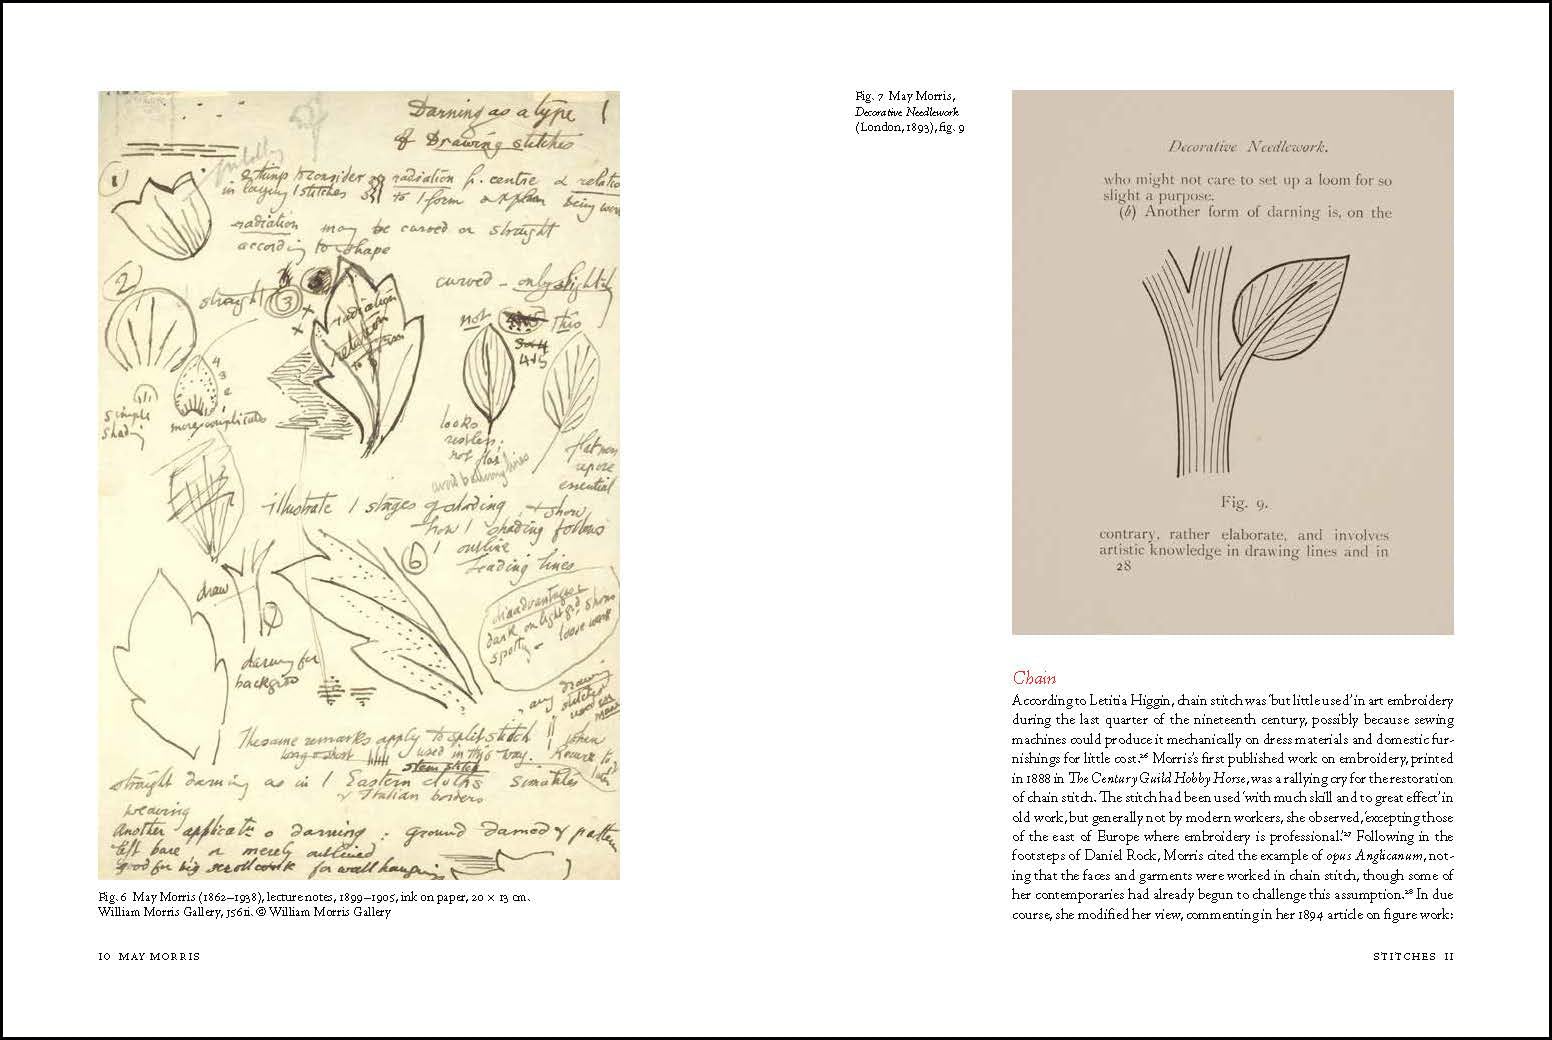 Darning as a type 1
of Drawing stitches
1
things to consider radiation fr. centre & relatio
in laying stitches to form explain being wor
radiation may be curved or straight
according to shape
2
straight 3
5
radiation
relation
to form
curved – only slightly
not this
4+5
simple
shading
4
3
2
1
more complicated
looks
restless.
not flat
avoid bounding lines
flatness
repose
essential
illustrate stages of shading, & show
how shading follows
outline
leading lines
6
draw
7
disadvantages
dark on light gd shows
spotty – loose work
darning for
backgrd
any drawing
stitches
used in
The same remarks apply to split stitch
long & short used in this way.
stem stitch
when
Return to
straight darning as in Eastern cloths simulates
& Italian borders
weaving
Another applicatn o darning : ground darned & pattern
left bare or merely outlined
good for big scroll work for wall hanging
Fig. 6 May Morris (1862–1938), lecture notes, 1899–1905, ink on paper, 20 × 13 cm.
William Morris Gallery, J561i. © William Morris Gallery
10 MAY MORRIS
Fig. 7 May Morris,
Decorative Needlework
(London, 1893), fig. 9
Decorative Needlework.
who might not care to set up a loom for so
slight a purpose.
(b) Another form of darning is, on the
Fig. 9.
contrary, rather elaborate, and involves
artistic knowledge in drawing lines and in
28
Chain
According to Letitia Higgin, chain stitch was ‘but little used’ in art embroidery
during the last quarter of the nineteenth century, possibly because sewing
machines could produce it mechanically on dress materials and domestic fur-
nishings for little cost.²⁶ Morris’s first published work on embroidery, printed
in 1888 in The Century Guild Hobby Horse, was a rallying cry for the restoration
of chain stitch. The stitch had been used ‘with much skill and to great effect’ in
old work, but generally not by modern workers, she observed, ‘excepting those
of the east of Europe where embroidery is professional.’²⁷ Following in the
footsteps of Daniel Rock, Morris cited the example of opus Anglicanum, not-
ing that the faces and garments were worked in chain stitch, though some of
her contemporaries had already begun to challenge this assumption.²⁸ In due
course, she modified her view, commenting in her 1894 article on figure work:
STITCHES 11